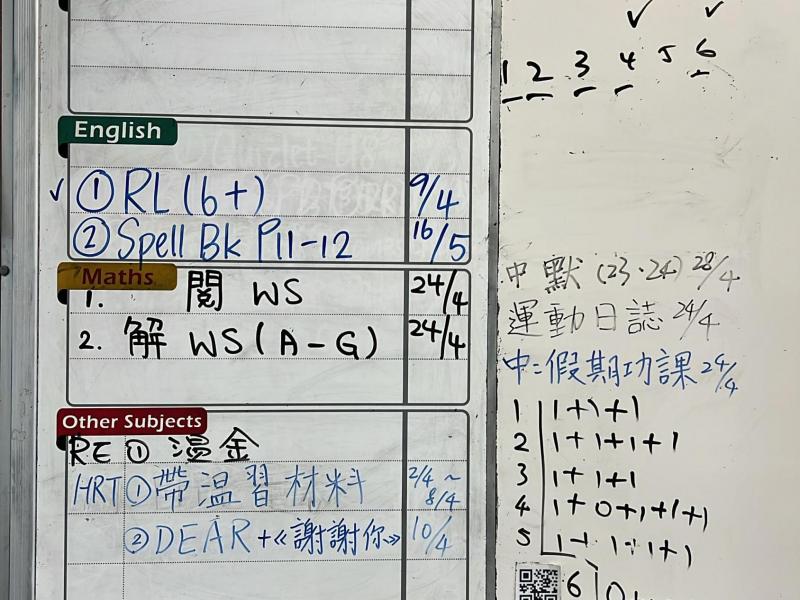 English
✓ ① RL (6+) 9/4
② Spell Bk P11-12 16/5
Maths
1. 閱 WS 24/4
2. 解 WS (A-G) 24/4
Other Subjects
RE ① 溫金
HRT ① 帶溫習材料 2/4 ~ 8/4
② DEAR + 《謝謝你》 10/4
✓ ✓
1 2 3 4 5 6
中默 (23.24) 28/4
運動日誌 24/4
中=假期功課 24/4
1 1+1+1
2 1+1+1+1
3 1+1+1
4 1+0+1+1+1
5 1+1+1+1
6 0